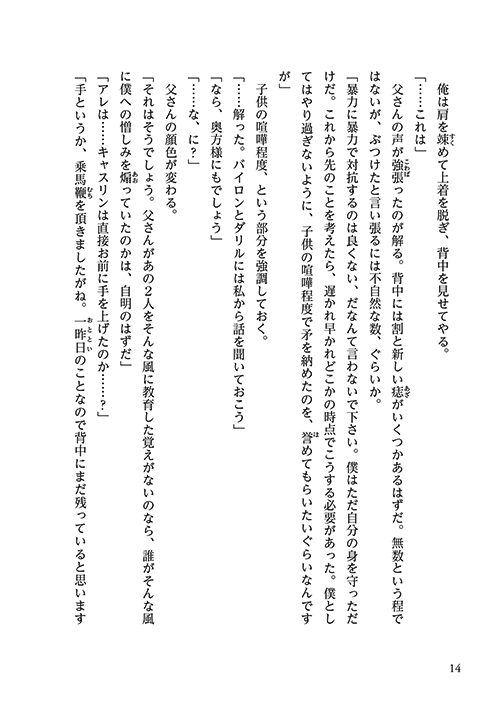 俺は肩を竦めて上着を脱ぎ、背中を見せてやる。
「……これは」
父さんの声が強張ったのが解る。背中には割と新しい痣がいくつかあるはずだ。無数という程で
はないが、ぶつけたと言い張るには不自然な数、ぐらいか。
「暴力に暴力で対抗するのは良くない、だなんて言わないで下さい。僕はただ自分の身を守っただ
けだ。これから先のことを考えたら、遅かれ早かれどこかの時点でこうする必要があった。僕とし
てはやり過ぎないように、子供の喧嘩程度で矛を納めたのを、誉めてもらいたいぐらいなんです
が」
子供の喧嘩程度、という部分を強調しておく。
「……解った。バイロンとダリルには私から話を聞いておこう」
「なら、奥方様にもでしょう」
「……な、に？」
父さんの顔色が変わる。
「それはそうでしょう。父さんがあの２人をそんな風に教育した覚えがないのなら、誰がそんな風
に僕への憎しみを煽っていたのかは、自明のはずだ」
「アレは……キャスリンは直接お前に手を上げたのか……？」
「手というか、乗馬鞭を頂きましたがね。一昨日のことなので背中にまだ残っていると思います
14